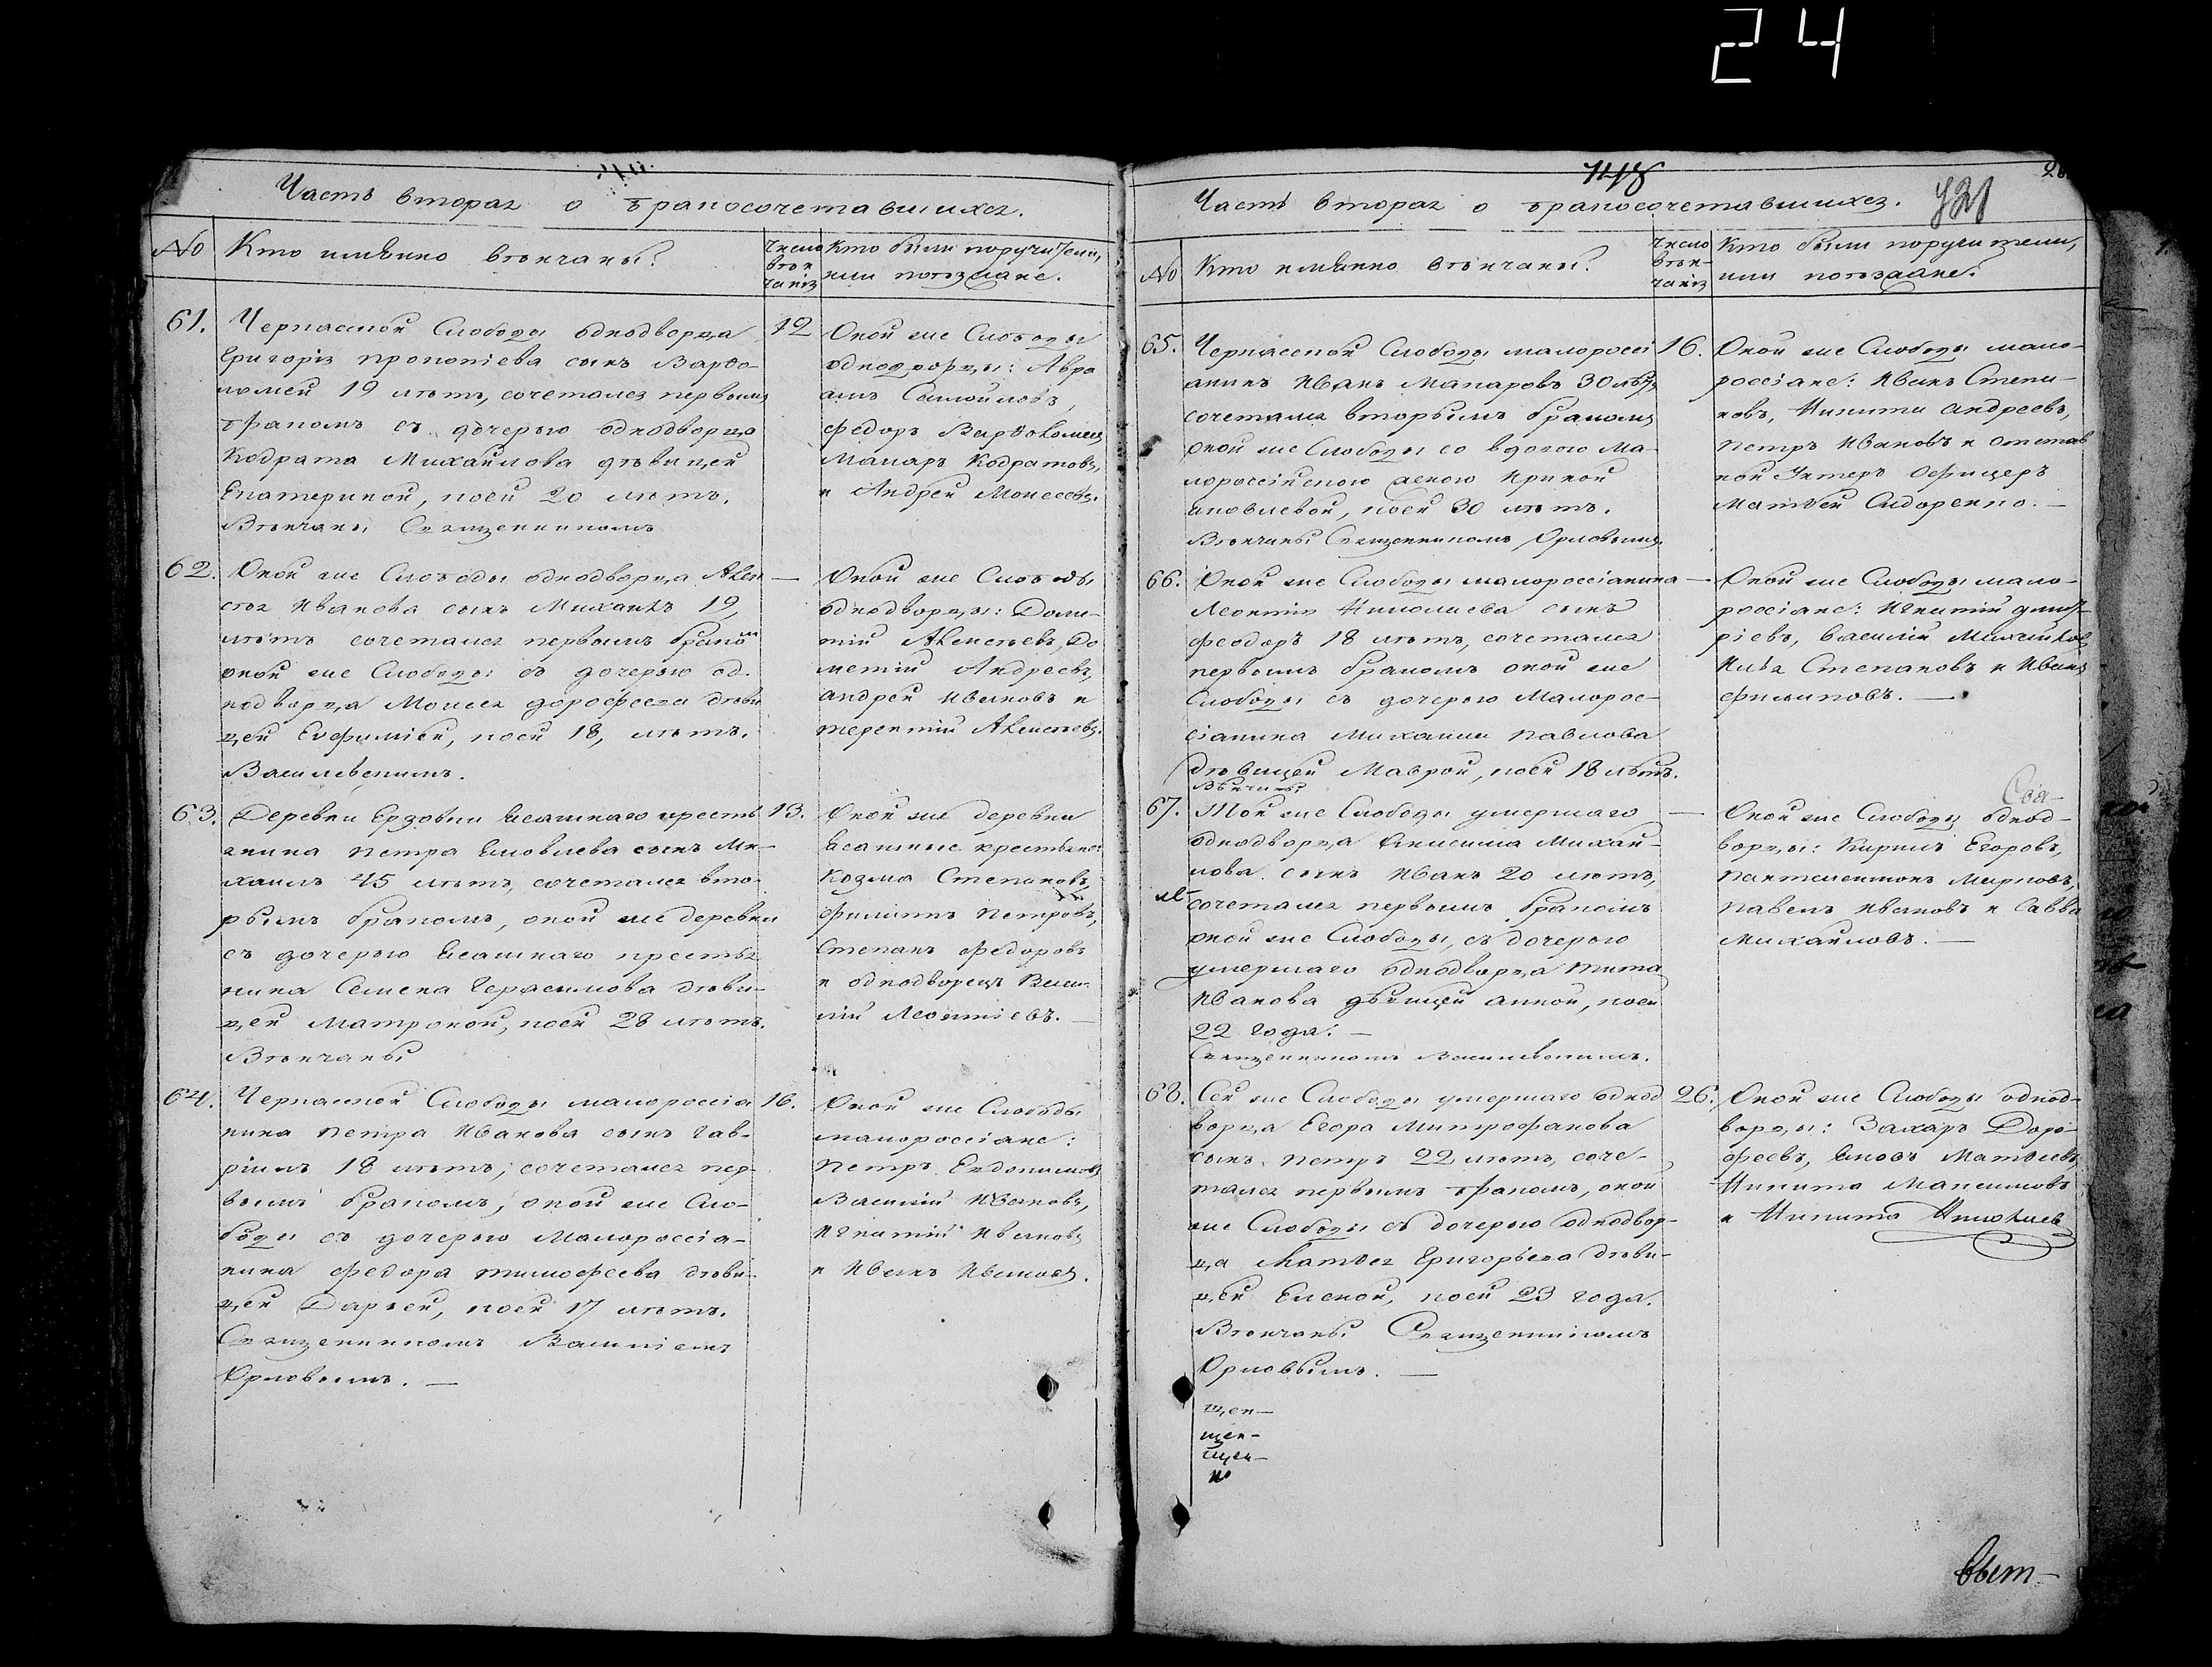 24
Часть вторая о бракосочетавшихся.
No
Кто имянно вѣнчаны?
Число вѣнчанія
Кто были поручители,
или поѣзжане.
61.
Черкаской Слободы однодворца
Григорія Прокопіева сынъ Варѳо-
ломей 19 лѣтъ, сочетался первымъ
бракомъ съ дочерью однодворца
Кодрата Михайлова дѣвицей
Екатериной, коей 20 лѣтъ.
Вѣнчаны Священникомъ
12
Оной же Слободы
однодворцы: Авра
амъ Самойловъ,
Федоръ Варѳоломеевъ
Макаръ Кодратовъ,
и Андрей Моисеевъ.
62.
Оной же Слободы однодворца Алек
сѣя Иванова сынъ Михаилъ 19,
лѣтъ сочетался первымъ бракомъ
оной же Слободы съ дочерью од-
нодворца Моисея Дорофеева дѣви
цей Евфимией, коей 18, лѣтъ.
Василевскимъ.
—
Оной же Слободы
однодворцы: Доме-
тій Алексѣевъ, До
метій Андреевъ,
Андрей Ивановъ и
Терентій Алексѣевъ.
63.
Деревни Ерзовки Ясашнаго кресть
янина Петра Яковлева сынъ Ми-
хаилъ 45 лѣтъ, сочетался вто-
рымъ бракомъ, оной же деревни
съ дочерью Ясашнаго крестья
нина Семена Герасимова дѣви-
цей Матроной, коей 28 лѣтъ.
Вѣнчаны
13.
Оной же деревни
Ясашные крестьяне:
Козма Степановъ,
Филипъ Петровъ,
Степанъ Федоровъ
и однодворецъ Васи-
лій Леонтіевъ. —
64.
Черкаской Слободы малороссія
нина Петра Иванова сынъ Гав-
ріилъ 18 лѣтъ, сочетался пер-
вымъ бракомъ, оной же Сло-
боды съ дочерью Малороссія-
нина Федора Тимофеева дѣви-
цей Дарьей, коей 17 лѣтъ.
Священникомъ Василіемъ
Орловымъ. —
16.
Оной же Слободы
малороссіяне:
Петръ Евдокимовъ
Василій Ивановъ,
Игнатій Ивановъ
и Иванъ Ивановъ.
Часть вторая о бракосочетавшихся.
No
Кто имянно вѣнчаны?
Число вѣн-
чанія
Кто были поручители,
или поѣзжане.
65.
Черкаской Слободы малоросси
янинъ Иванъ Макаровъ 30 лѣтъ,
сочетался вторымъ бракомъ
оной же Слободы со вдовою Ма-
лороссійскою женою Ириной
Яковлевой, коей 30 лѣтъ.
Вѣнчаны Священникомъ Орловымъ.
16.
Оной же Слободы мало-
россіяне: Иванъ Степа-
новъ, Никита Андреевъ,
Петръ Ивановъ и отстав
ной Унтеръ Офицеръ
Матвей Сидоренко. —
66.
Оной же Слободы малороссіянина
Леонтія Николаева сынъ
Феодоръ 18 лѣтъ, сочетался
первымъ бракомъ оной же
Слободы съ дочерью Малорос-
сіянина Михаила Павлова
дѣвицей Маврой, коей 18 лѣтъ.
Вѣнчаны
—
Оной же Слободы мало-
россіяне: Игнатій Дмит
ріевъ, Василій Михайлов
Илья Степановъ и Иванъ
Филиповъ. —
67.
Той же Слободы умершаго
однодворца Анисима Михай-
лова сынъ Иванъ 20 лѣтъ,
сочетался первымъ бракомъ
оной же Слободы, съ дочерью
умершаго однодворца Тита
Иванова дѣвицей Анной, коей
22 года. —
Священникомъ Василевскимъ.
—
Оной же Слободы однод-
ворцы: Кирилъ Егоровъ,
Пантелеимонъ Марковъ,
Павелъ Ивановъ и Савва
Михайловъ. —
68.
Сей же Слободы умершаго однод
ворца Егора Митрофанова
сынъ Петръ 22 лѣтъ, соче-
тался первымъ бракомъ, оной
же Слободы съ дочерью однодвор-
ца Матвея Григорьева дѣви-
цей Еленой, коей 23 года.
Вѣнчаны Священникомъ
Орловымъ. —
26.
Оной же Слободы однод-
ворцы: Захаръ Доро-
феевъ, Яковъ Матвеевъ
Никита Максимовъ
и Никита Николаев
щен—
щен—
щен—